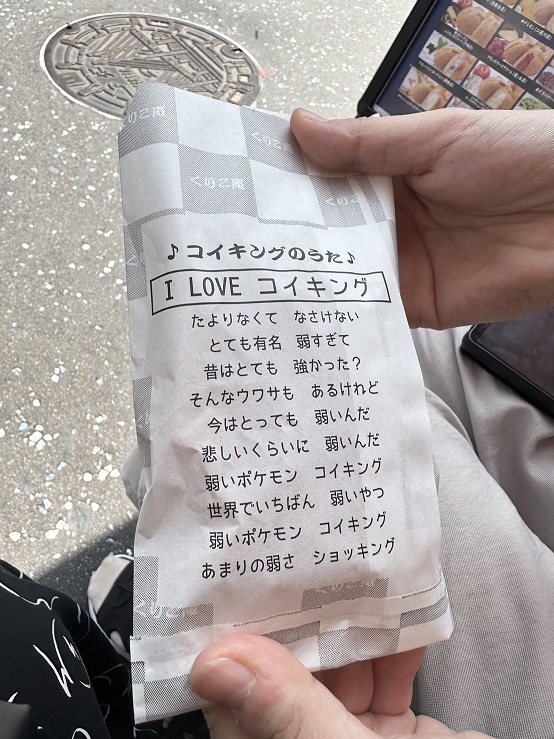 くりこ庵
くりこ庵
くりこ庵
♪コイキングのうた♪
I LOVE コイキング
たよりなくて なさけない
とても有名 弱すぎて
昔はとても 強かった？
そんなウワサも あるけれど
今はとっても 弱いんだ
悲しいくらいに 弱いんだ
弱いポケモン コイキング
世界でいちばん 弱いやつ
弱いポケモン コイキング
あまりの弱さ ショッキング
くりこ庵
くりこ庵